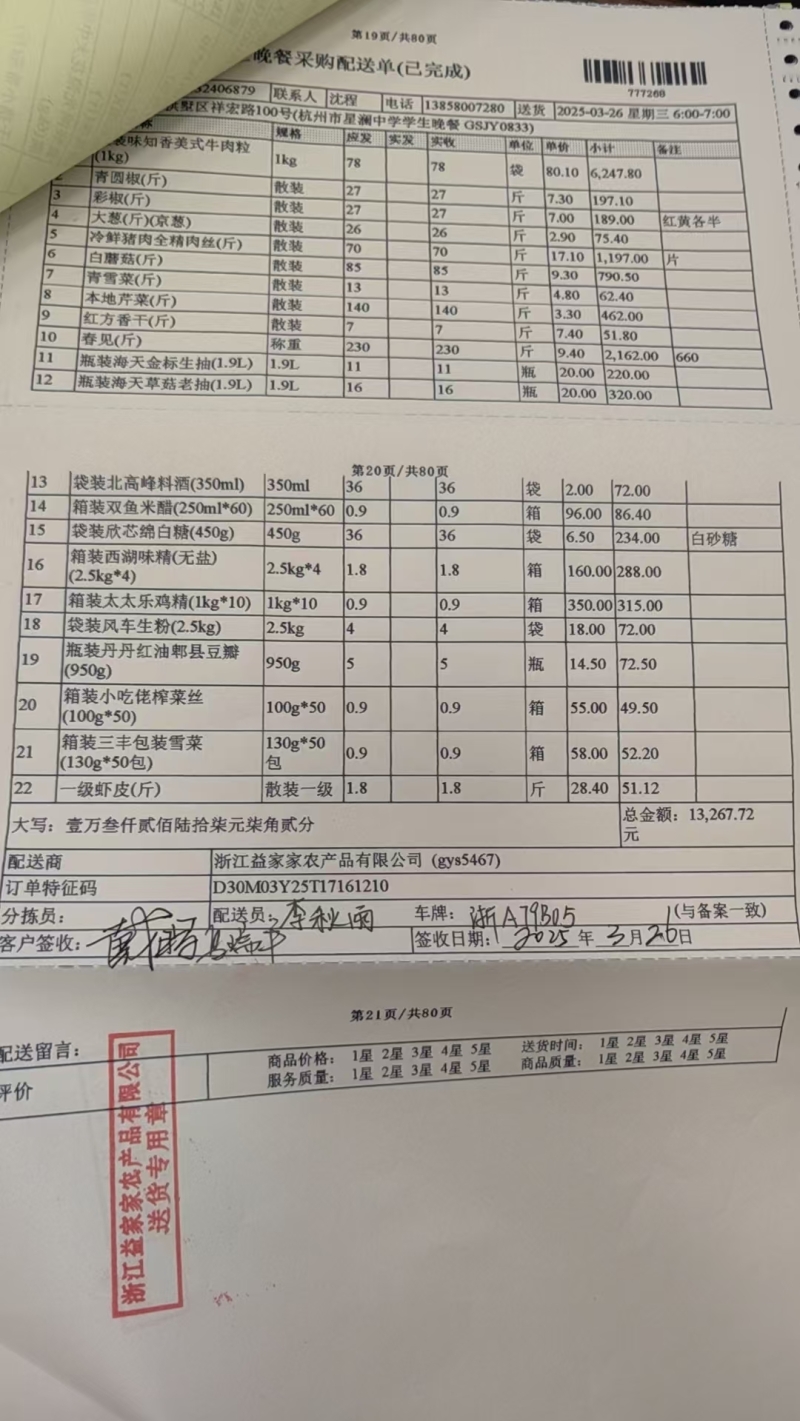 第19页/共80页
晚餐采购配送单(已完成)
777268
32406879 联系人 沈程 电话 13858007280 送货 2025-03-26 星期三 6:00-7:00
拱墅区祥宏路100号(杭州市星澜中学学生晚餐 GSJY0833)
称 规格 应发 实发 实收 单位 单价 小计 备注
装味知香美式牛肉粒(1kg) 1kg 78 78 袋 80.10 6,247.80
2 青圆椒(斤) 散装 27 27 斤 7.30 197.10
3 彩椒(斤) 散装 27 27 斤 7.00 189.00 红黄各半
4 大葱(斤)(京葱) 散装 26 26 斤 2.90 75.40
5 冷鲜猪肉全精肉丝(斤) 散装 70 70 斤 17.10 1,197.00 片
6 白蘑菇(斤) 散装 85 85 斤 9.30 790.50
7 青雪菜(斤) 散装 13 13 斤 4.80 62.40
8 本地芹菜(斤) 散装 140 140 斤 3.30 462.00
9 红方香干(斤) 散装 7 7 斤 7.40 51.80
10 春见(斤) 称重 230 230 斤 9.40 2,162.00 660
11 瓶装海天金标生抽(1.9L) 1.9L 11 11 瓶 20.00 220.00
12 瓶装海天草菇老抽(1.9L) 1.9L 16 16 瓶 20.00 320.00
第20页/共80页
13 袋装北高峰料酒(350ml) 350ml 36 36 袋 2.00 72.00
14 箱装双鱼米醋(250ml*60) 250ml*60 0.9 0.9 箱 96.00 86.40
15 袋装欣芯绵白糖(450g) 450g 36 36 袋 6.50 234.00 白砂糖
16 箱装西湖味精(无盐)(2.5kg*4) 2.5kg*4 1.8 1.8 箱 160.00 288.00
17 箱装太太乐鸡精(1kg*10) 1kg*10 0.9 0.9 箱 350.00 315.00
18 袋装风车生粉(2.5kg) 2.5kg 4 4 袋 18.00 72.00
19 瓶装丹丹红油郫县豆瓣(950g) 950g 5 5 瓶 14.50 72.50
20 箱装小吃佬榨菜丝(100g*50) 100g*50 0.9 0.9 箱 55.00 49.50
21 箱装三丰包装雪菜(130g*50包) 130g*50包 0.9 0.9 箱 58.00 52.20
22 一级虾皮(斤) 散装一级 1.8 1.8 斤 28.40 51.12
大写：壹万叁仟贰佰陆拾柒元柒角贰分 总金额：13,267.72元
配送商 浙江益家家农产品有限公司 (gys5467)
订单特征码 D30M03Y25T17161210
分拣员： 配送员：李秋雨 车牌：浙A79B05 (与备案一致)
客户签收： 签收日期：2025年3月26日
第21页/共80页
配送留言：
评价 商品价格： 1星 2星 3星 4星 5星 送货时间： 1星 2星 3星 4星 5星
服务质量： 1星 2星 3星 4星 5星 商品质量： 1星 2星 3星 4星 5星
浙江益家家农产品有限公司
送货专用章